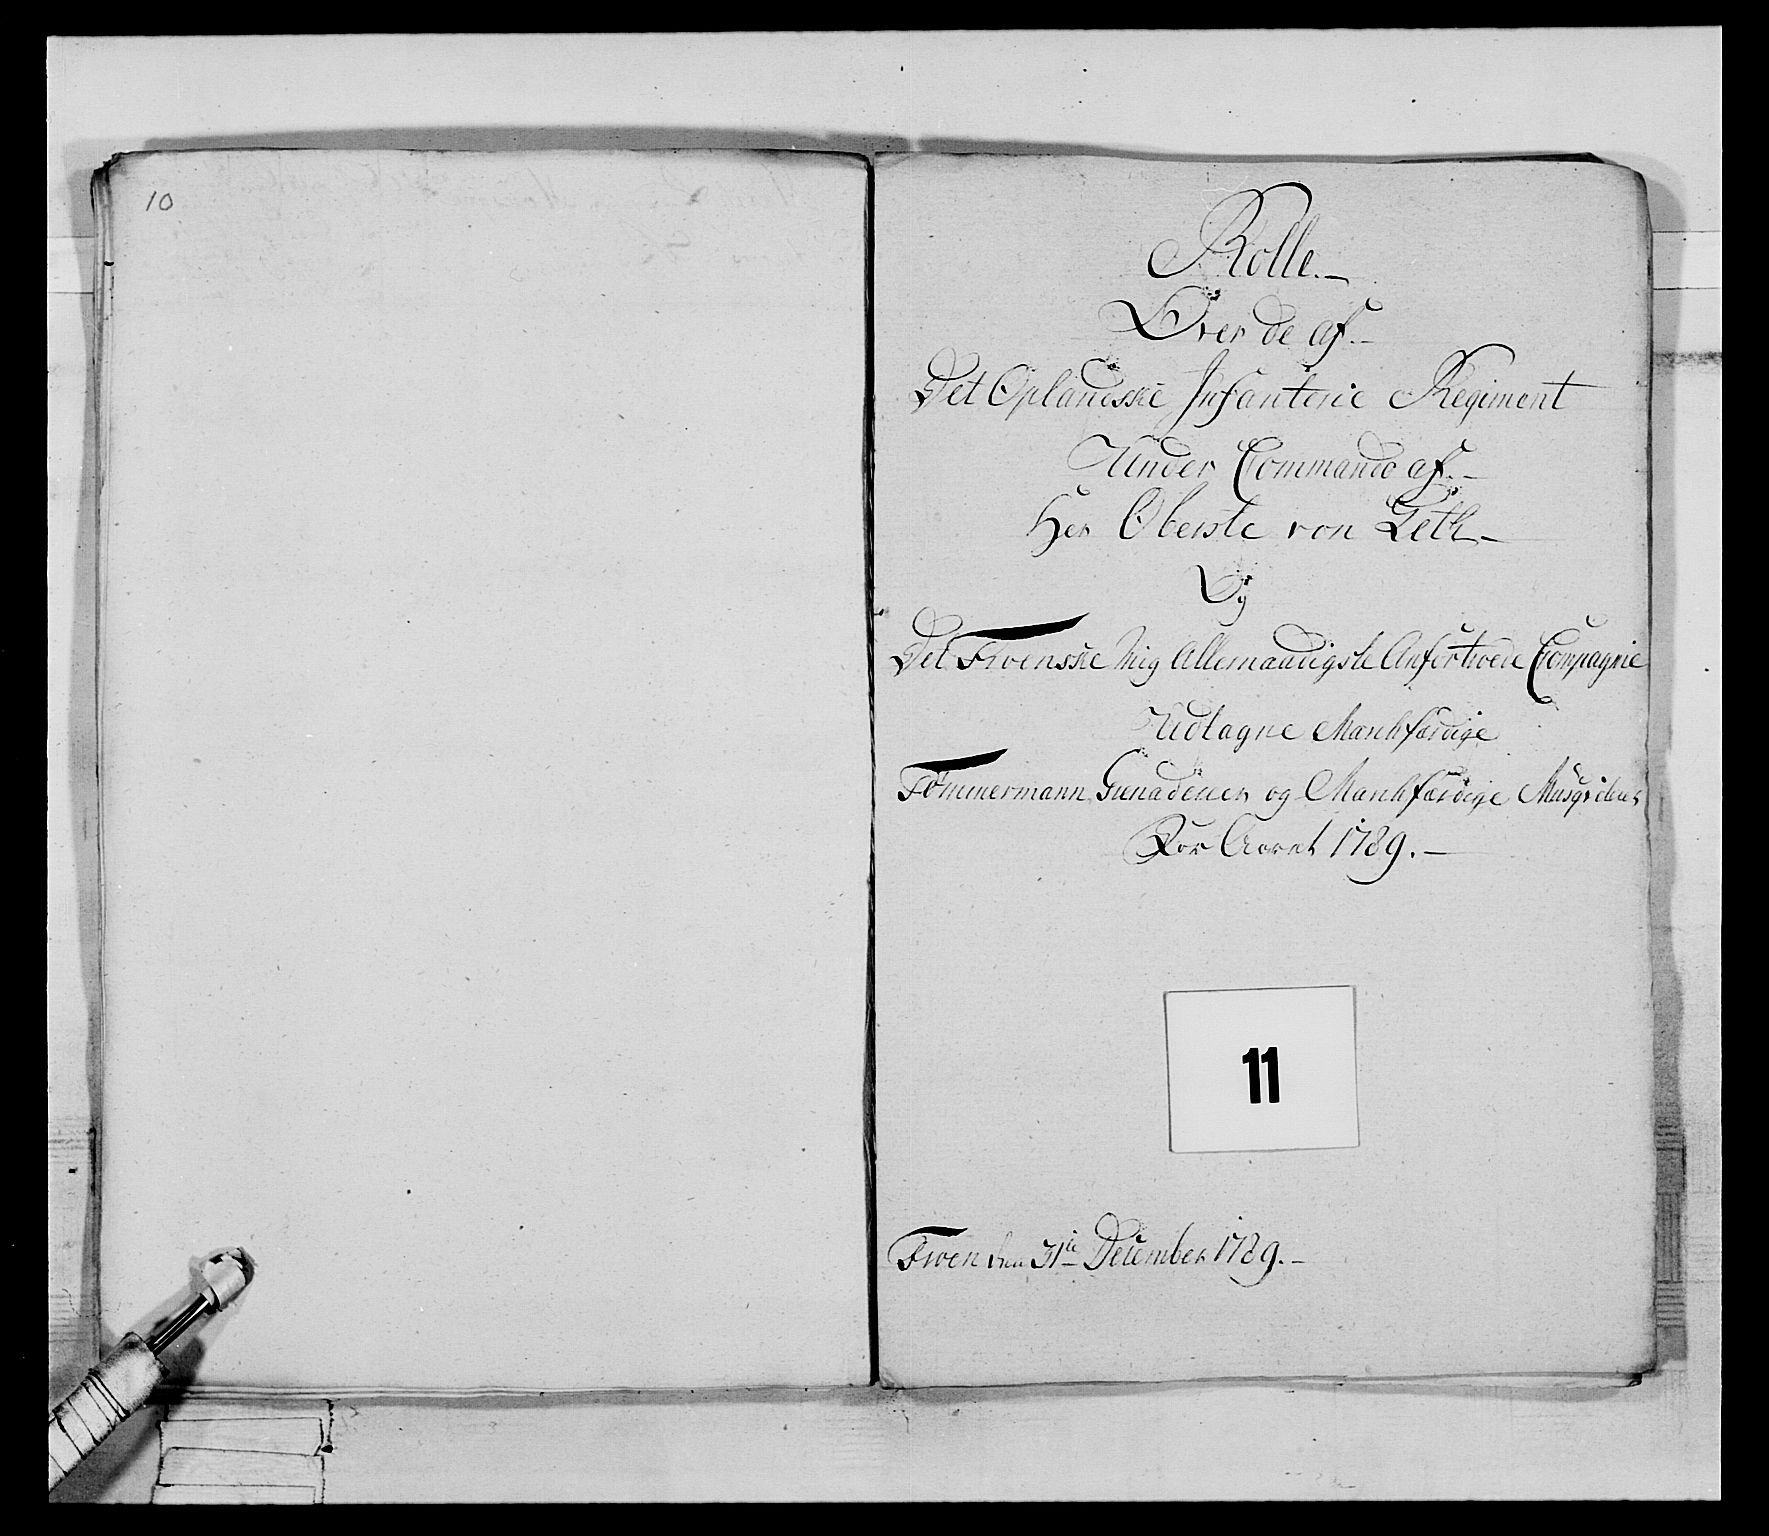 10
Rolle.
Over de af.
Det Oplandske Infanterie Regiment
Under Commando af.
Her Oberste von
Og
Det Troenske mig Allernaadigste Anfortroede Compagnie
Udtagne Marchfærdige
Tømmermann Grenaderer og Marchfærdige Musqvterer
For Aaret 1789.
11
Troen den 31te December 1789.